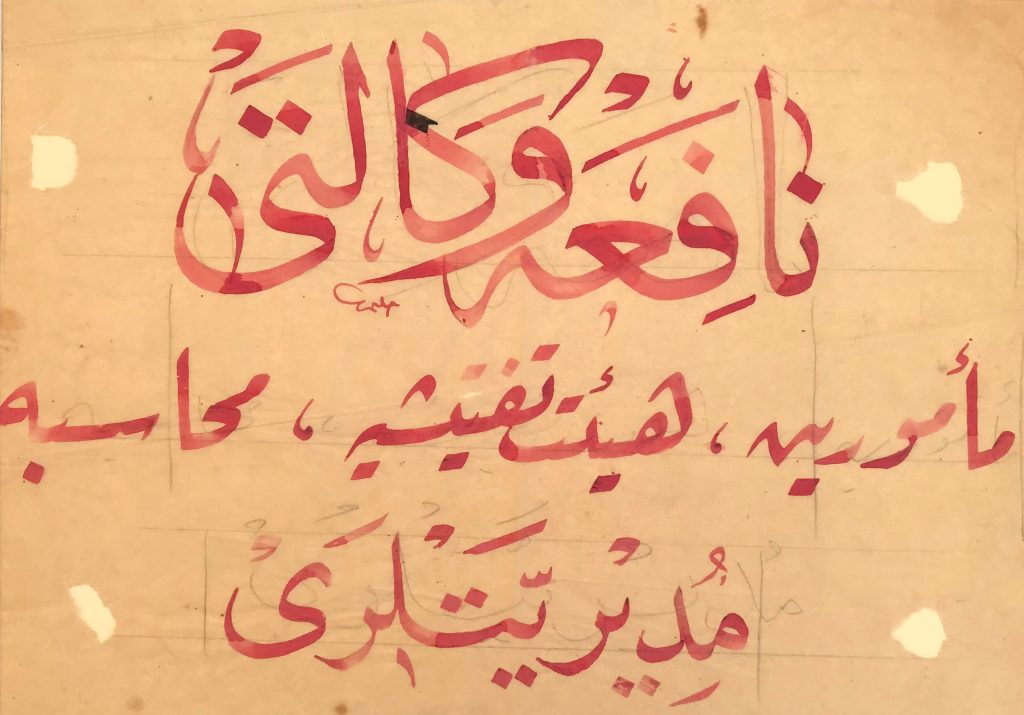 نافعه وكالتى
مأمورين ، هيئت تفتيشيه ، محاسبه
مديريتلرى